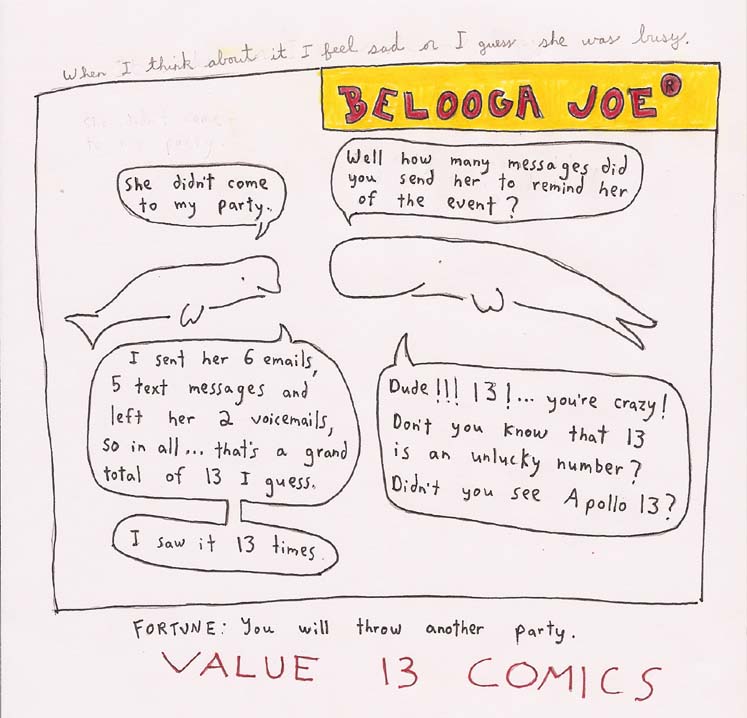 When I think about it I feel sad or I guess she was busy.
BELOOGA JOE®
She didn't come
to my party.
She didn't come
to my party.
Well how many messages did
you send her to remind her
of the event?
I sent her 6 emails,
5 text messages and
left her 2 voicemails,
so in all... that's a grand
total of 13 I guess.
Dude!!! 13!... you're crazy!
Don't you know that 13
is an unlucky number?
Didn't you see Apollo 13?
I saw it 13 times
FORTUNE: You will throw another party.
VALUE 13 COMICS